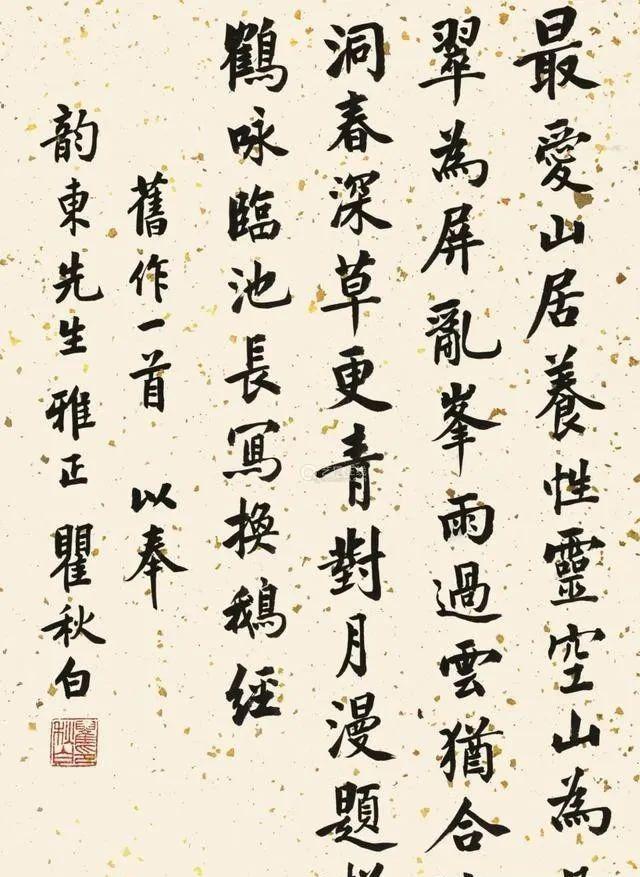 最愛山居養性靈空山為
翠為屏亂峯雨過雲猶合
洞春深草更青對月漫題
鶴咏臨池長寫換鵝經
舊作一首 以奉
韵東先生雅正 瞿秋白